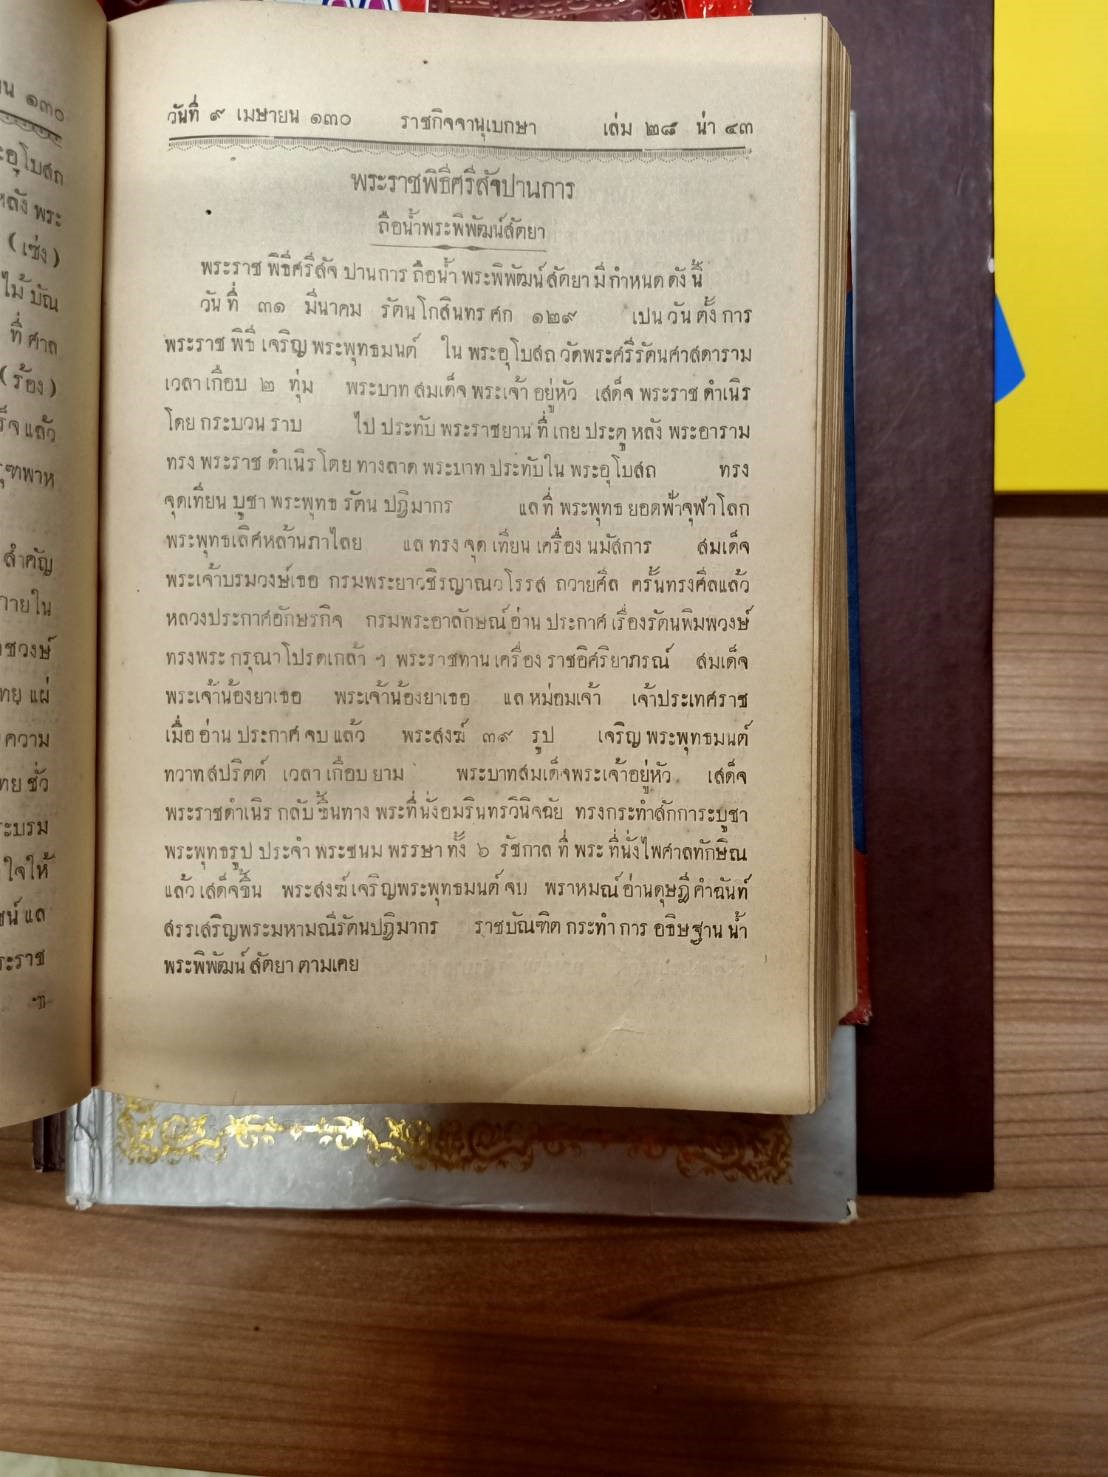 น ๑๓๐
ะอุโบสถ
หลัง พระ
(เซ่ง)
ไม้ บัณ
ที่ ศาล
(ร้อง)
ร็จ แล้ว
รุฑพาห
สำคัญ
ภายใน
ชวงษ์
ทย แผ่
ความ
ทย ชั่ว
ะบรม
ใจให้
ชน์ แล
ะราช
วันที่ ๙ เมษายน ๑๓๐ ราชกิจจานุเบกษา เล่ม ๒๘ น่า ๔๓
พระราชพิธีศรีสัจปานการ
ถือน้ำพระพิพัฒน์สัตยา
พระราช พิธีศรีสัจ ปานการ ถือน้ำ พระพิพัฒน์สัตยา มี กำหนด ดังนี้
วัน ที่ ๓๑ มีนาคม รัตนโกสินทร ศก ๑๒๙ เปน วัน ตั้ง การ
พระราช พิธี เจริญ พระพุทธมนต์ ใน พระอุโบสถ วัดพระศรีรัตนศาสดาราม
เวลา เกือบ ๒ ทุ่ม พระบาท สมเด็จ พระเจ้า อยู่หัว เสด็จ พระราช ดำเนิร
โดย กระบวน ราบ ไป ประทับ พระราชยาน ที่ เกย ประตู หลัง พระอาราม
ทรง พระราช ดำเนิร โดย ทางลาด พระบาท ประทับใน พระอุโบสถ ทรง
จุดเทียน บูชา พระพุทธ รัตน ปฏิมากร แล ที่ พระพุทธ ยอดฟ้าจุฬาโลก
พระพุทธเลิศหล้านภาไลย แล ทรง จุด เทียน เครื่อง นมัสการ สมเด็จ
พระเจ้าบรมวงษ์เธอ กรมพระยาวชิรญาณวโรรส ถวายศีล ครั้นทรงศีลแล้ว
หลวงประกาศอักษรกิจ กรมพระอาลักษณ์ อ่าน ประกาศ เรื่องรัตนพิมพวงษ์
ทรงพระ กรุณาโปรดเกล้า ฯ พระราชทาน เครื่อง ราชอิศริยาภรณ์ สมเด็จ
พระเจ้าน้องยาเธอ พระเจ้าน้องยาเธอ แล หม่อมเจ้า เจ้าประเทศราช
เมื่อ อ่าน ประกาศ จบ แล้ว พระสงฆ์ ๓๙ รูป เจริญ พระพุทธมนต์
ทวาทสปริตต์ เวลา เกือบ ยาม พระบาทสมเด็จพระเจ้าอยู่หัว เสด็จ
พระราชดำเนิร กลับ ขึ้นทาง พระที่นั่งอมรินทรวินิจฉัย ทรงกระทำสักการะบูชา
พระพุทธรูป ประจำ พระชนม พรรษา ทั้ง ๖ รัชกาล ที่ พระ ที่นั่งไพศาลทักษิณ
แล้ว เสด็จขึ้น พระสงฆ์ เจริญพระพุทธมนต์ จบ พราหมณ์ อ่านดุษฎี คำฉันท์
สรรเสริญพระมหามณีรัตนปฏิมากร ราชบัณฑิต กระทำ การ อธิษฐาน น้ำ
พระพิพัฒน์ สัตยา ตามเคย